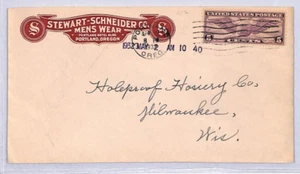 STEWART-SCHNEIDER CO.
MENS WEAR
PORTLAND HOTEL BLDG.
PORTLAND, OREGON
S
S
OREG.
1932 MAR 2 AM 10 40
UNITED STATES POSTAGE
5 CENTS 5
Holeproof Hosiery Co,
Milwaukee,
Wis.